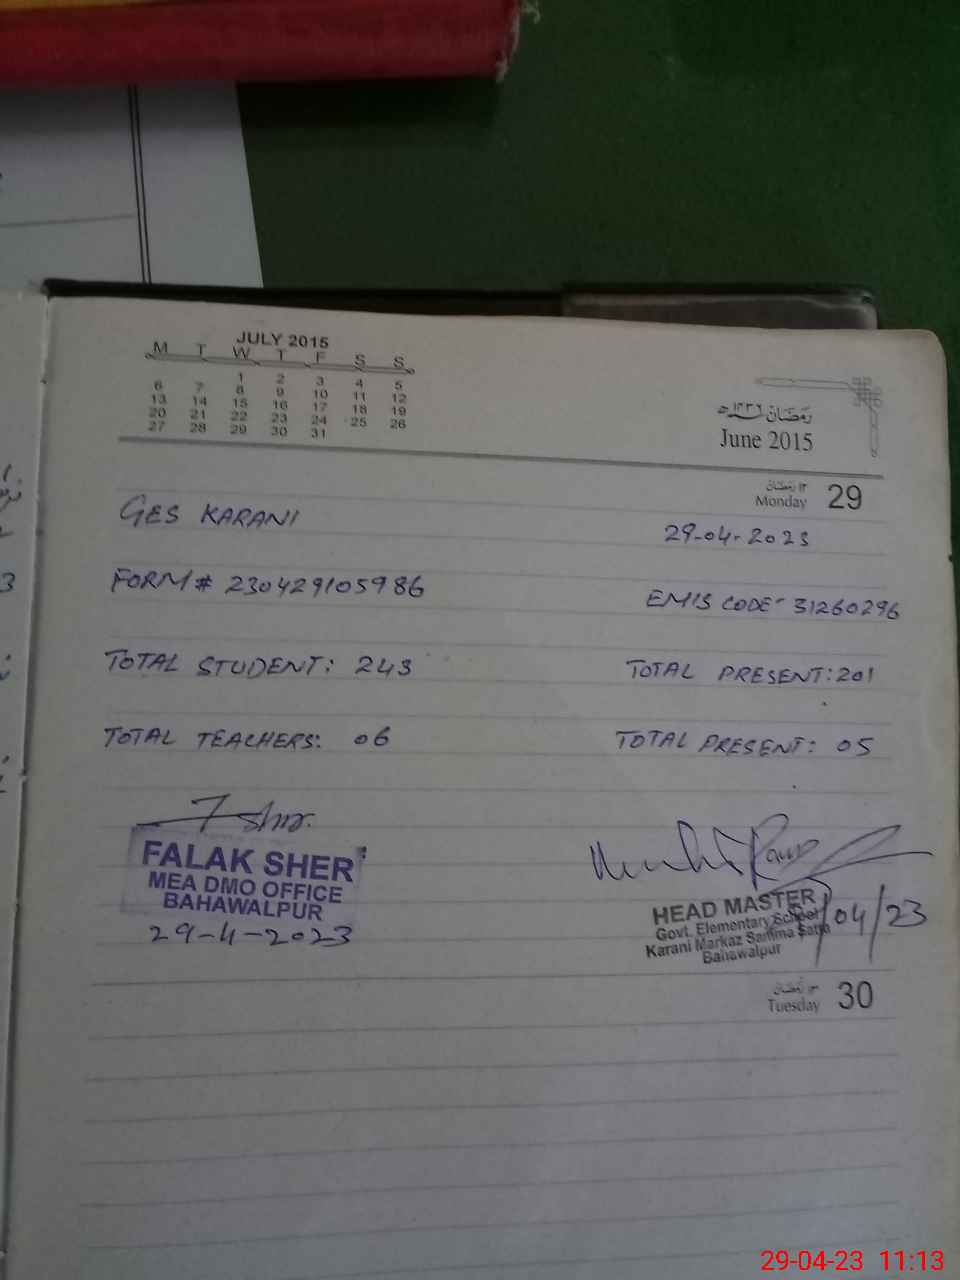 JULY 2015
M T W T F S S
1 2 3 4 5
6 7 8 9 10 11 12
13 14 15 16 17 18 19
20 21 22 23 24 25 26
27 28 29 30 31
رمضان ۱۴۳۶ھ
June 2015
۱۲ رمضان
Monday 29
GES KARANI
29-04-2023
FORM # 230429105986
EMIS CODE- 31260296
TOTAL STUDENT: 243
TOTAL PRESENT: 201
TOTAL TEACHERS: 06
TOTAL PRESENT: 05
FALAK SHER
MEA DMO OFFICE
BAHAWALPUR
29-4-2023
HEAD MASTER
Govt. Elementary School
Karani Markaz Samma Satta
Bahawalpur
/04/23
۱۳ رمضان
Tuesday 30
29-04-23 11:13